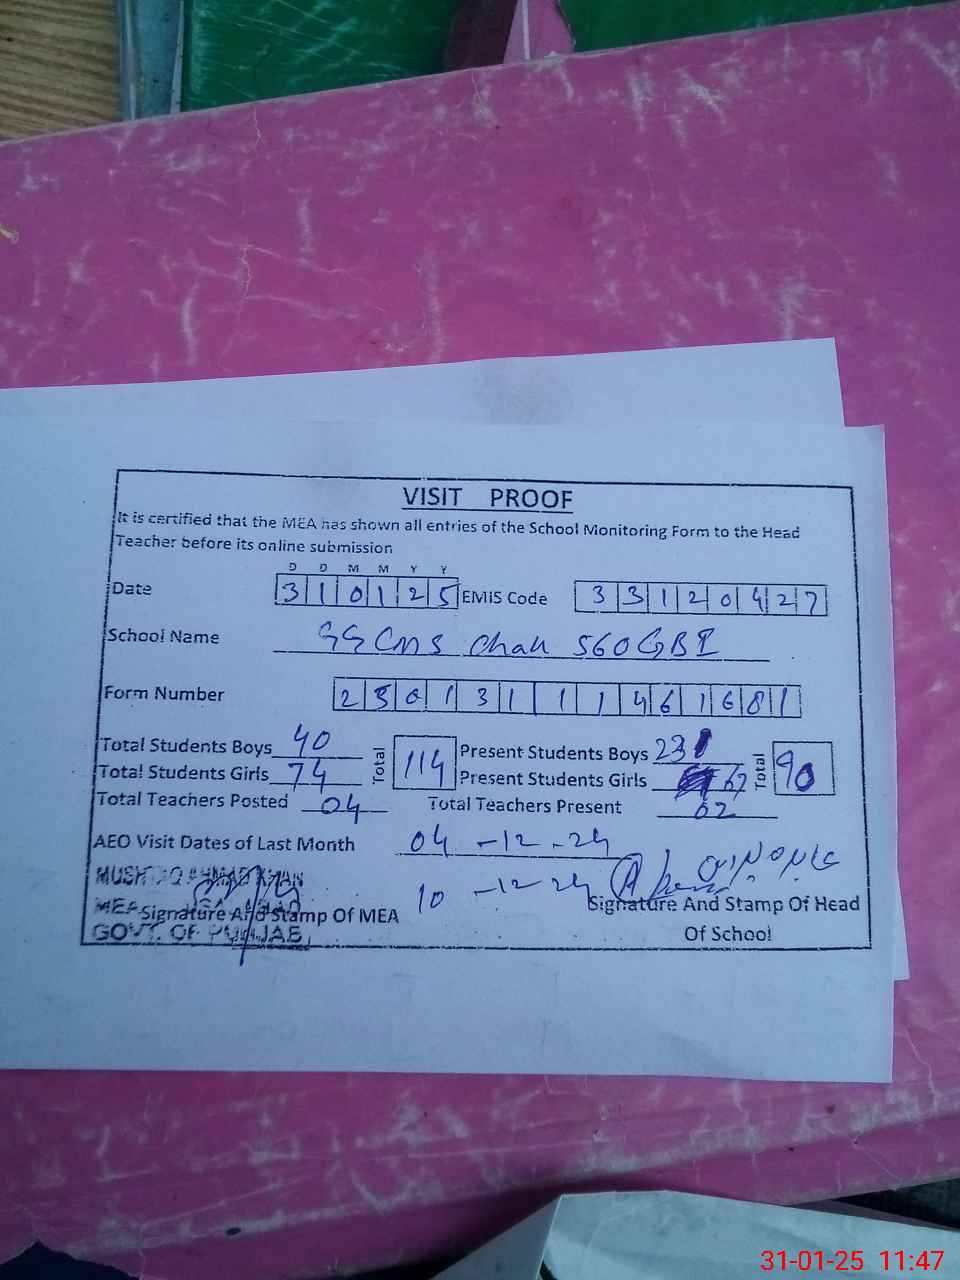 VISIT PROOF
It is certified that the MEA has shown all entries of the School Monitoring Form to the Head
Teacher before its online submission
D D M M Y Y
Date 310125 EMIS Code 33120427
School Name GGCMS Chak 560GBI
Form Number 250131111461681
Total Students Boys 40 Total 114 Present Students Boys 23 Total 90
Total Students Girls 74 Present Students Girls 67
Total Teachers Posted 04 Total Teachers Present 02
AEO Visit Dates of Last Month 04-12-24
10-12-24
MUSHTAQ AHMAD KHAN
MEA
Signature And Stamp Of MEA
GOVT. OF PUNJAB
Signature And Stamp Of Head
Of School
31-01-25 11:47